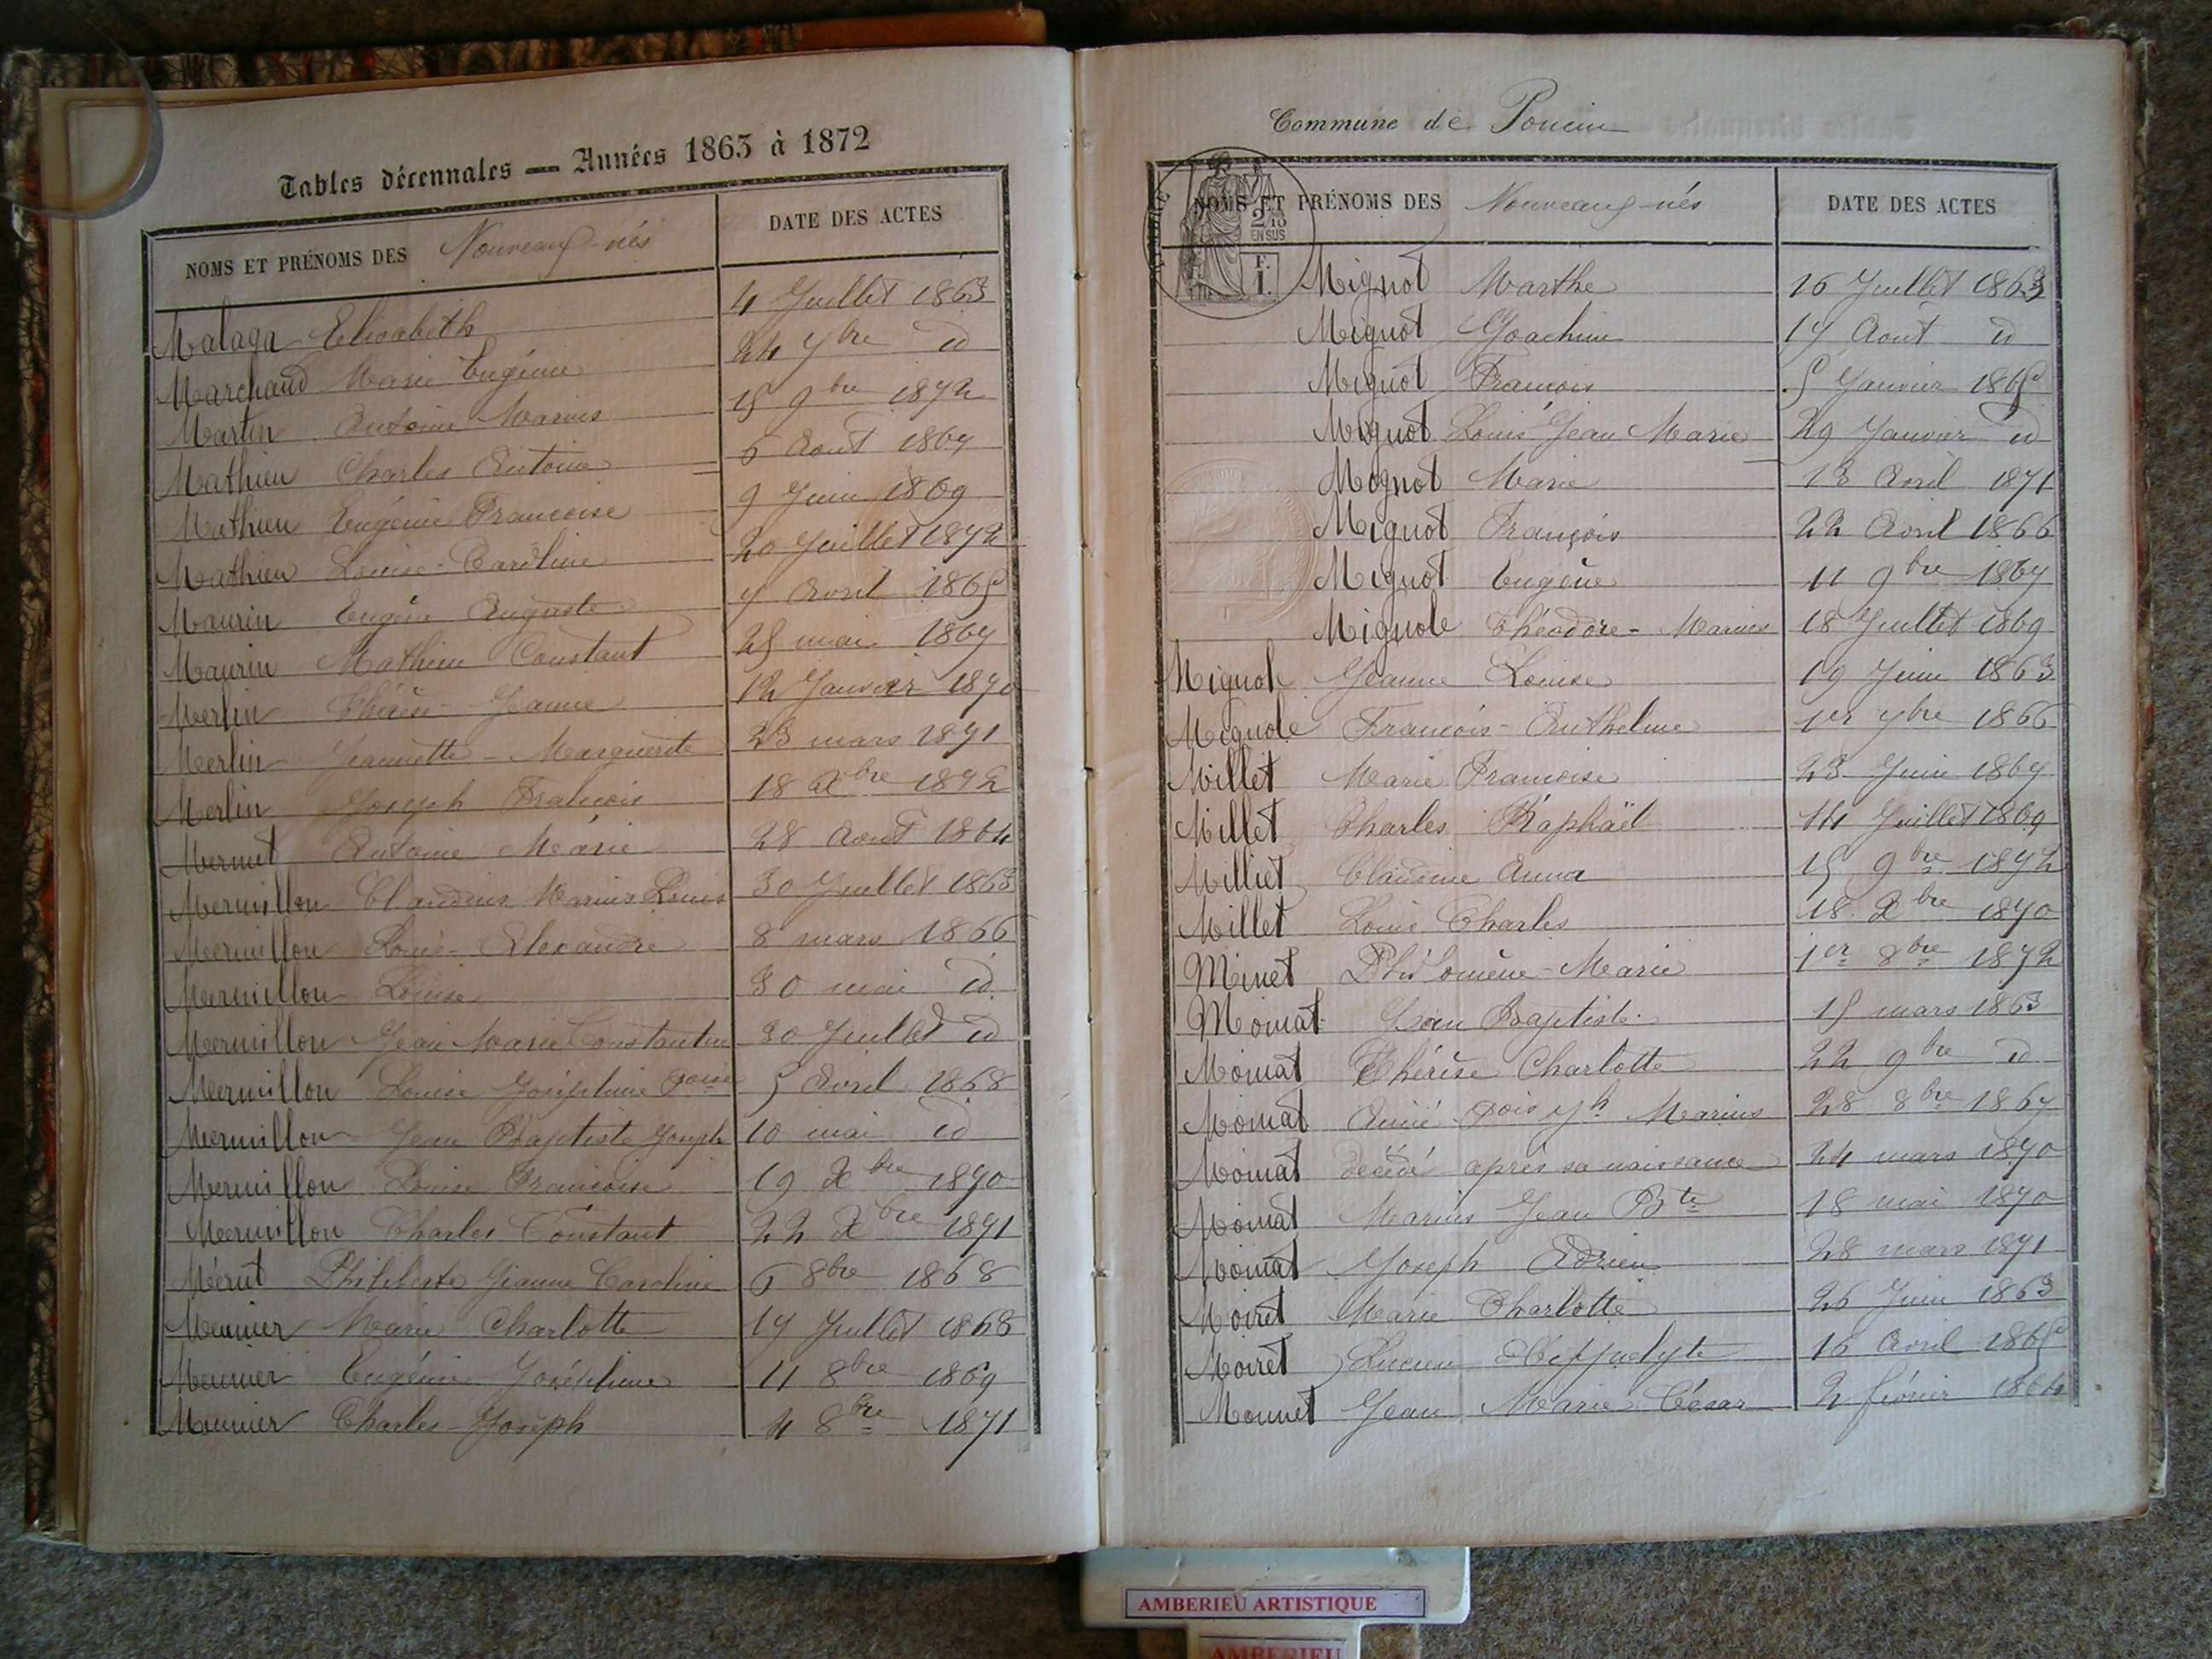 Tables décennales — Années 1863 à 1872
NOMS ET PRÉNOMS DES Nouveaux-nés DATE DES ACTES
Malaga Elisabeth 4 Juillet 1863
Marchand Marie Eugénie 24 7bre id
Martin Antoine Marius 15 9bre 1872
Mathieu Charles Antoine 6 Aout 1867
Mathieu Eugénie Francoise 9 Juin 1869
Mathieu Louise-Caroline 20 Juillet 1872
Maurin Eugène Auguste 7 Avril 1865
Maurin Mathieu Constant 25 mai 1867
Merlin Thérèse-Jeanne 12 Janvier 1870
Merlin Jeannette-Marguerite 23 mars 1871
Merlin Joseph Francois 18 Xbre 1872
Mermet Antoine Marie 28 Aout 1864
Mermillon Claudius Marius Louis 30 Juillet 1863
Mermillon Louis-Alexandre 8 mars 1866
Mermillon Louise 30 mai id
Mermillon Jean Marie Constantin 30 Juillet id
Mermillon Louise Joséphine Foise 5 Avril 1868
Mermillon Jean Baptiste Joseph 10 mai id
Mermillon Louise Francoise 19 Xbre 1870
Mermillon Charles Constant 22 Xbre 1871
Mérut Philiberte Jeanne Caroline 6 8bre 1868
Meunier Marie Charlotte 17 Juillet 1868
Meunier Eugénie Joséphine 11 8bre 1869
Meunier Charles-Joseph 4 8bre 1871
Commune de Poncin
TIMBRE
2/10
EN SUS
F.
1.
NOMS ET PRÉNOMS DES Nouveaux-nés DATE DES ACTES
Mignot Marthe 16 Juillet 1863
Mignot Joachim 17 Aout id
Mignot Francois 5 Janvier 1865
Mignot Louis Jean Marie 29 Janvier id
Mignot Marie 13 Avril 1871
Mignot François 22 Avril 1866
Mignot Eugène 11 9bre 1867
Mignole Théodore-Marius 18 Juillet 1869
Mignole Jeanne Louise 19 Juin 1863
Mignole Francois-Anthelme 1er 7bre 1866
Millet Marie Francoise 23 Juin 1867
Millet Charles Raphaël 14 Juillet 1869
Milliet Claudine Anna 15 9bre 1872
Millet Louis Charles 18 Xbre 1870
Minet Philomène-Marie 1er 8bre 1872
Moinat Jean Baptiste 15 mars 1863
Moinat Thérèse Charlotte 22 9bre id
Moinat Aimé Fois Jh Marius 28 8bre 1867
Moinat décédé après sa naissance 24 mars 1870
Moinat Marius Jean Bte 18 mai 1870
Moinat Joseph Adrien 28 mars 1871
Moiret Marie Charlotte 26 Juin 1863
Moiret Lucien Hippolyte 16 Avril 1865
Monnet Jean Marie César 2 février 1864
AMBERIEU ARTISTIQUE
AMBERIEU